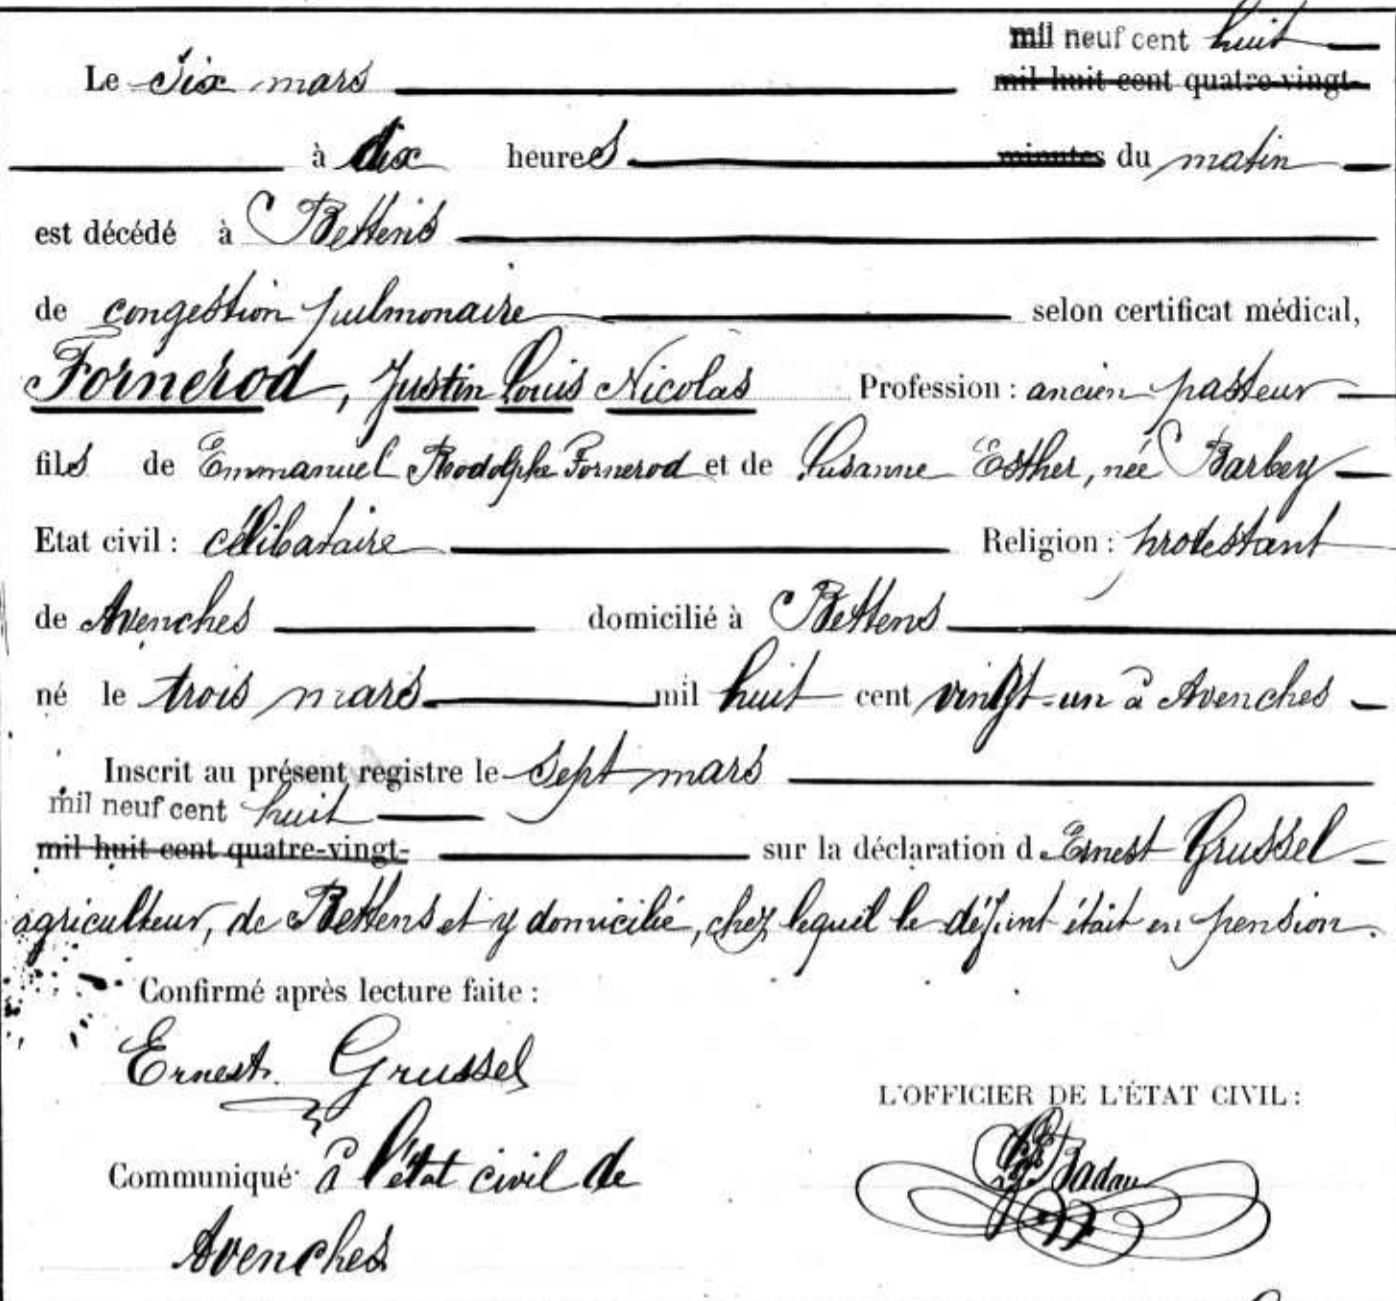 mil neuf cent huit
Le six mars mil huit cent quatre-vingt-
à dix heures minutes du matin
est décédé à Bettens
de congestion pulmonaire selon certificat médical,
Fornerod, Justin Louis Nicolas Profession : ancien pasteur
fils de Emmanuel Rodolphe Fornerod et de Susanne Esther, née Barbey
Etat civil : célibataire Religion : protestant
de Avenches domicilié à Bettens
né le trois mars mil huit cent vingt-un à Avenches
Inscrit au présent registre le sept mars
mil neuf cent huit
mil huit cent quatre-vingt- sur la déclaration d Ernest Grussel
agriculteur, de Bettens et y domicilié, chez lequel le défunt était en pension.
Confirmé après lecture faite :
Ernest Grussel
L'OFFICIER DE L'ÉTAT CIVIL :
Badan
Communiqué à l'état civil de
Avenches